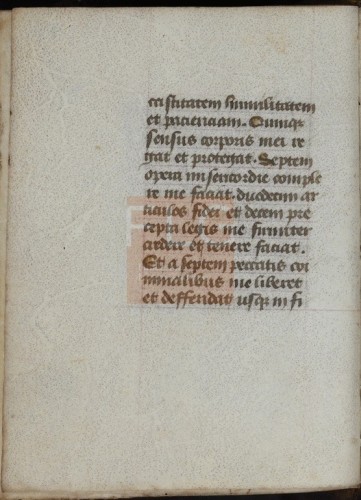 castitatem humilitatem
et pacienciam. Quinqz
sensus corporis mei re
gat et protegat. Septem
opera misericordie comple
re me faciat. duodecim ar
ticulos fidei et decem pre
cepta legis me firmiter
credere et tenere faciat.
Et a septem peccatis cri
minalibus me liberet
et deffendat usqz in fi